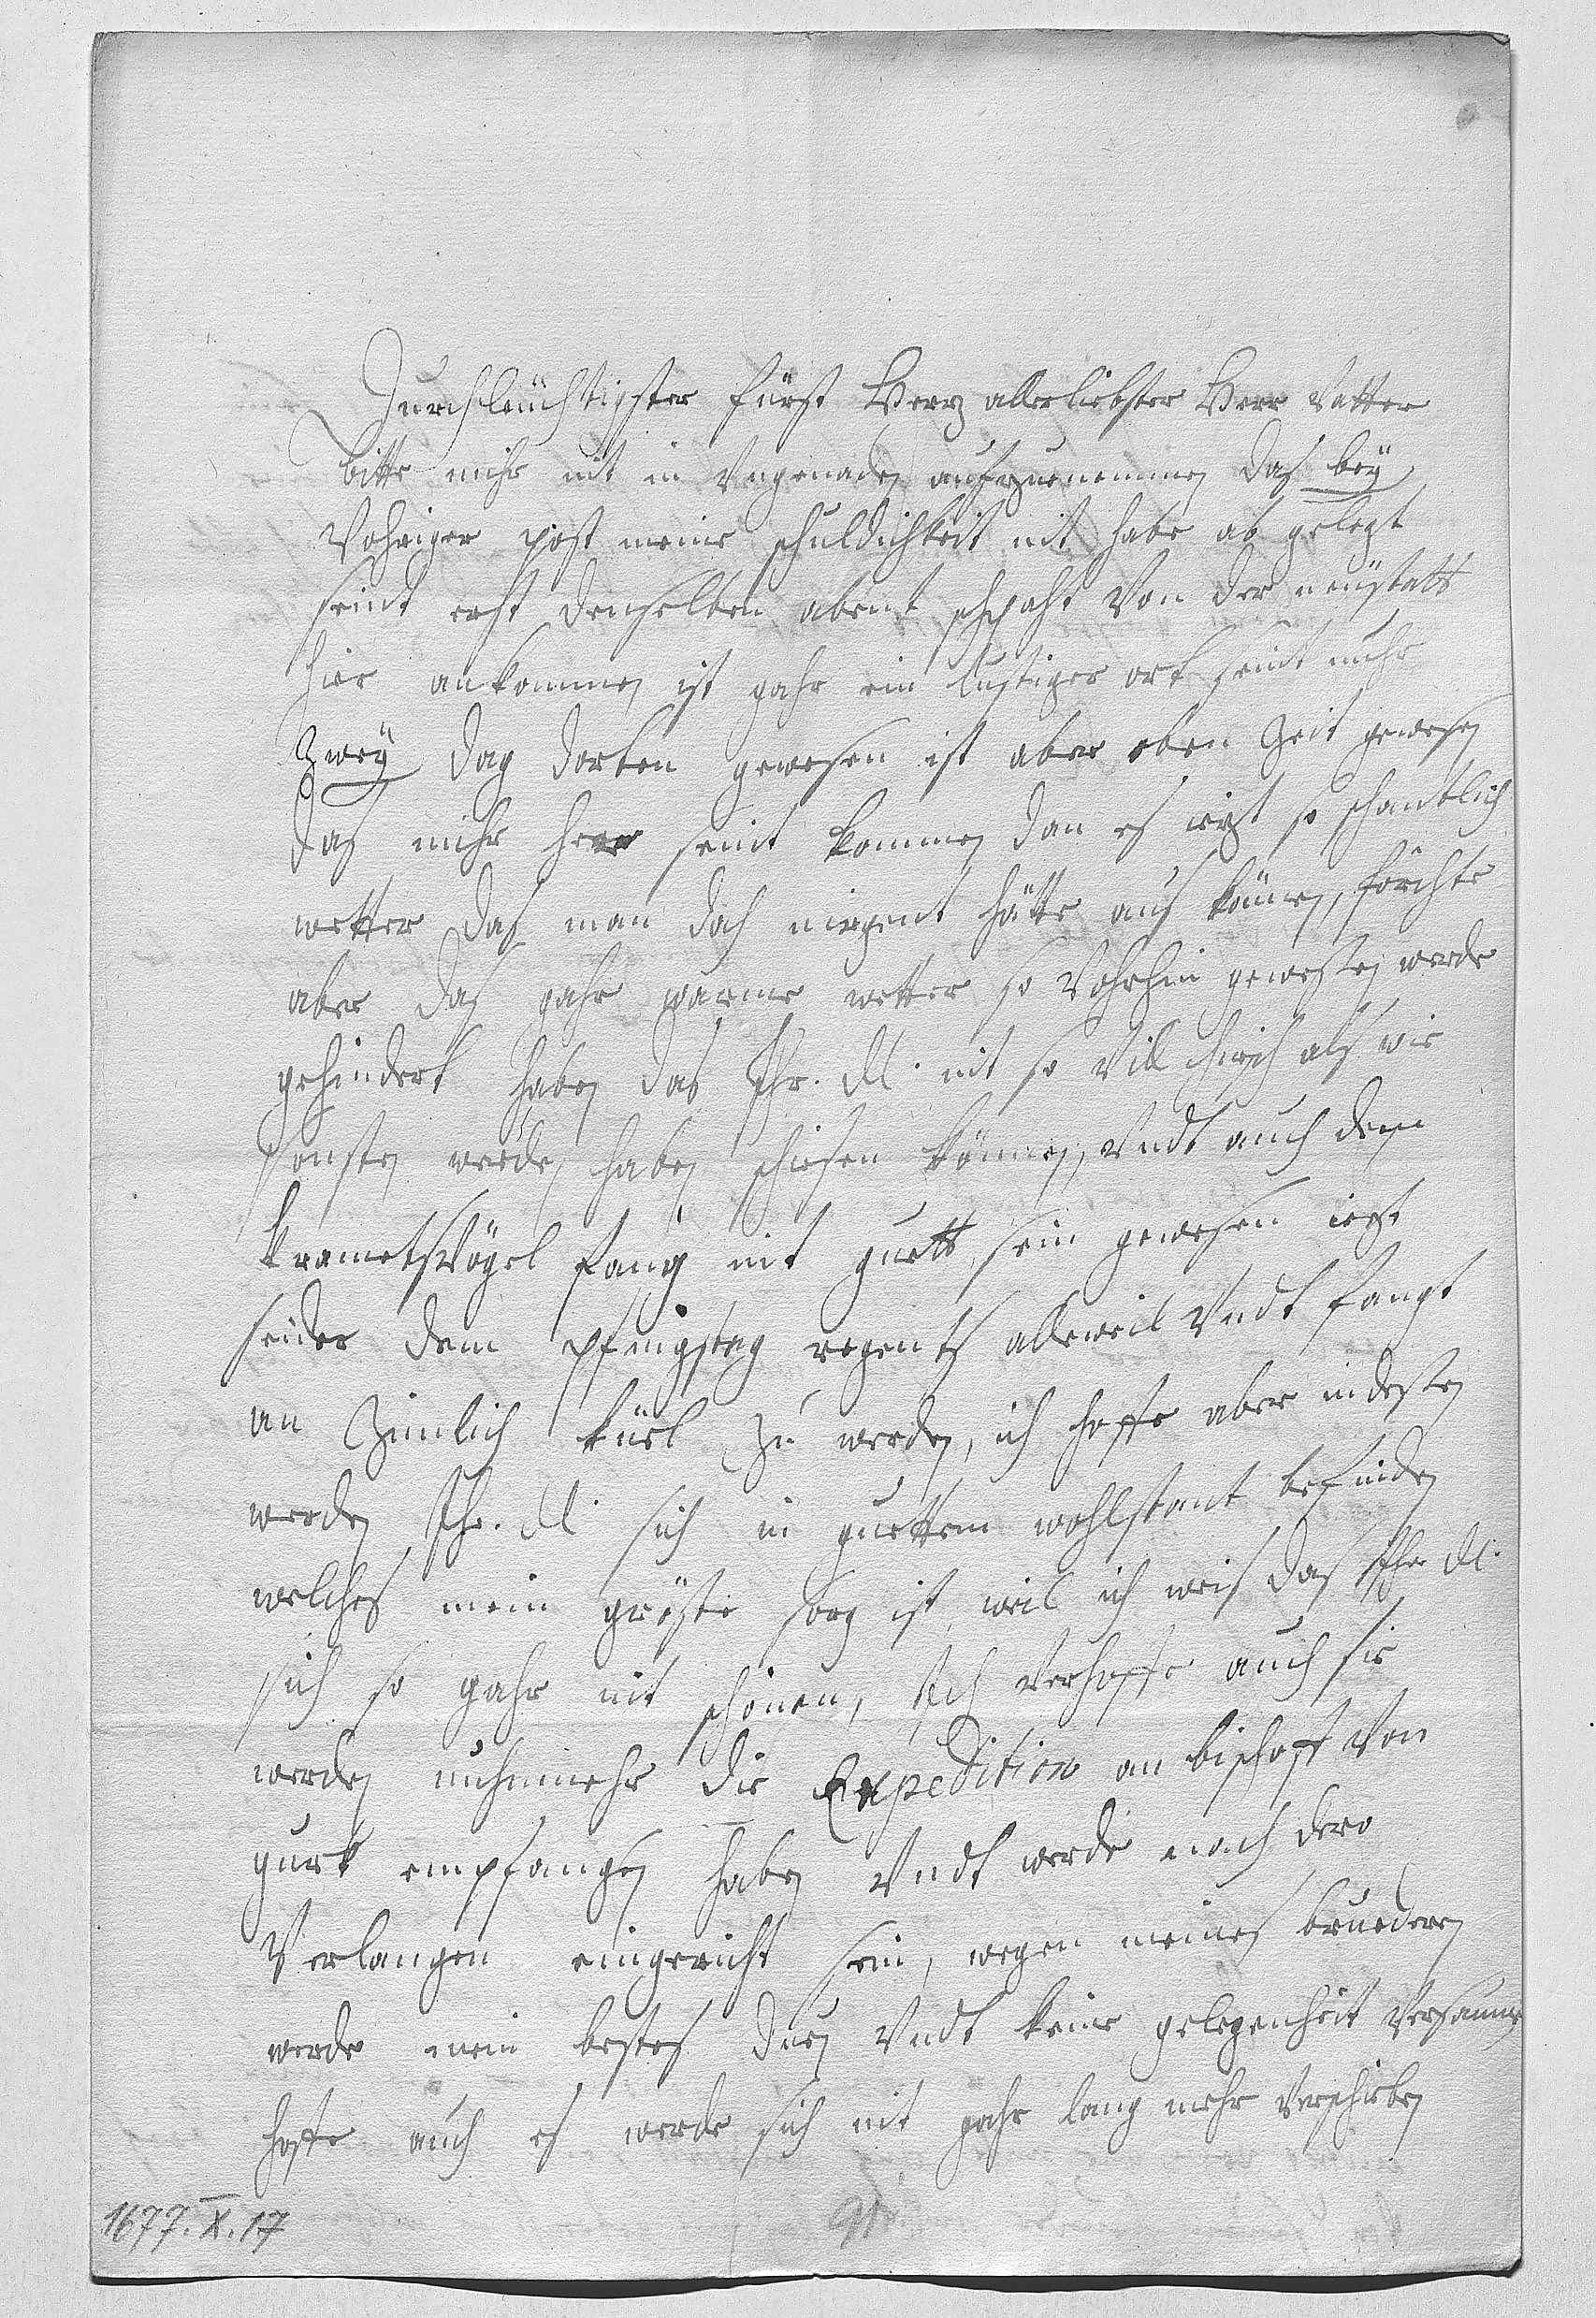 Durchleüchtigster fürst Herz allerliebster Herr Vatter
bitte mihr nit in Vngenaden aufzuenemmen das bey
Vohriger post meine schuldichkeit nit habe ab gelegt
seint erst denselben abent schpaht Von der neüstatt
hier ankommen ist gahr ein lustiger ort seint nuhr
Zwey dag dorten gewesen ist aber eben Zeit gewesen
das mihr herr seint kommen dan es iezt so schantlich
wetter das man doch nirgent hätte aus könen, förchte
aber das gahr warme wetter so Vohrhin gewesten werde
gehindert haben das Ihr. Dl. nit so Vill hirsch als wie
sonsten werden haben schiesen können, Vndt auch dem
krametsVögel fang nit guett sein gewesen iezt
seider dem pfingstag regents alleweil Vndt fangt
an Zimlich küel zu werden, ich hoffe aber indesten
werden Ihr. Dl. sich in guettem wohlstant befinden
welches mein gröste sorg ist weil ich weis das Ihr Dl.
sich so gahr nit schonen, Ich Verhoffe auch sie
werden nuhnmehr die Expedition an bischoff Von
gurk empfangen haben Vndt werde nach dero
Verlangen eingericht sein, wegen meines bruederen
werde mein bestes duen Vndt keine gelegenheit Versaumen
hoffe auch es werde sich nit gahr lang mehr Verschieben
1677.X.17